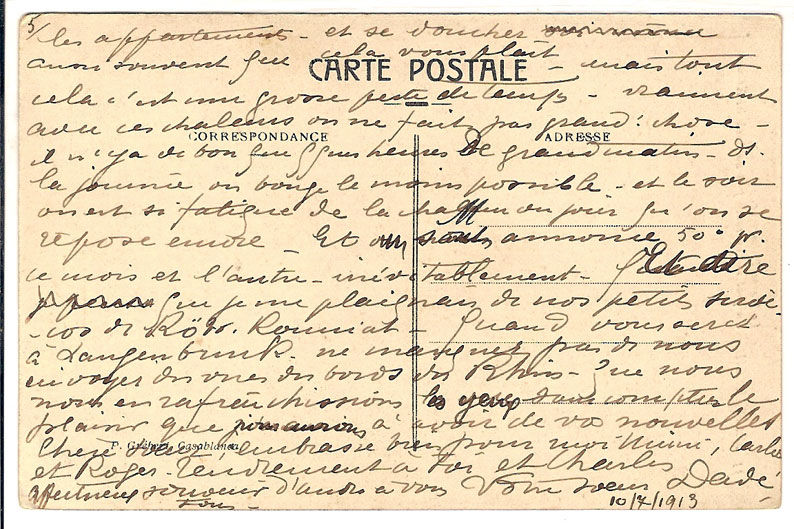 5/
les appartements - et se doucher
aussi souvent que cela vous plait - mais tout
CARTE POSTALE
cela c'est une grosse perte de temps - vraiment
avec ces chaleurs on ne fait pas grand'chose -
CORRESPONDANCE ADRESSE
il n'y a de bon que qques heures de grand matin - ds.
la journée on bouge le moins possible - et le soir
on est si fatigué de la chaleur du jour qu'on se
repose encore - Et on nous annonce 50° pr.
ce mois et l'autre - inévitablement - Et dire
que je me plaignais de nos petits
de Rouniat - Quand vous serez
à Langenbruck ne manquez pas de nous
envoyer des vues des bords du Rhin - que nous
nous en rafraîchissions les yeux sans compter le
plaisir que nous aurons à avoir de vos nouvelles
P. Grébert, Casablanca
Chère embrasse bien pour moi Mimi, Carlo
et Roger. Tendrement à toi et Charles
affectueux souvenir d'André à vous Votre soeur Dadé
tous -
10/7/1913